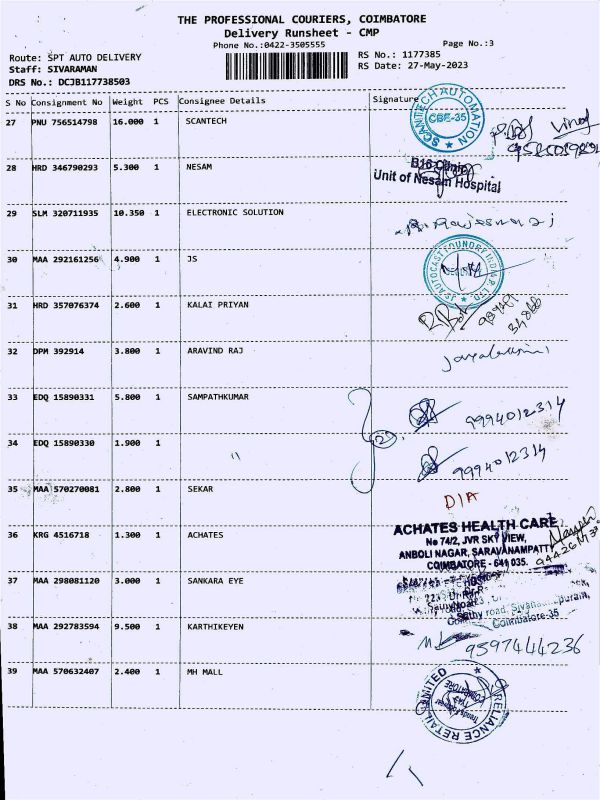 THE PROFESSIONAL COURIERS, COIMBATORE
Delivery Runsheet - CMP
Phone No.:0422-3505555
Page No.:3
Route: SPT AUTO DELIVERY
RS No.: 1177385
Staff: SIVARAMAN
RS Date: 27-May-2023
DRS No.: DCJB117738503
S No Consignment No Weight PCS Consignee Details Signature
27 PNU 756514798 16.000 1 SCANTECH
SCANTECH AUTOMATION
CBE-35
28 HRD 346790293 5.300 1 NESAM
B16 Clinic
Unit of Nesam Hospital
29 SLM 320711935 10.350 1 ELECTRONIC SOLUTION
30 MAA 292161256 4.900 1 JS
JS AUTOCAST FOUNDRY
31 HRD 357076374 2.600 1 KALAI PRIYAN
32 DPM 392914 3.800 1 ARAVIND RAJ
33 EDQ 15890331 5.800 1 SAMPATHKUMAR
9994012314
34 EDQ 15890330 1.900 1 "
9994012314
35 MAA 570270081 2.800 1 SEKAR
D/A
36 KRG 4516718 1.300 1 ACHATES
ACHATES HEALTH CARE
No 74/2, JVR SKY VIEW,
ANBOLI NAGAR, SARAVANAMPATTY
COIMBATORE - 641 035.
37 MAA 298081120 3.000 1 SANKARA EYE
Coimbatore-35
38 MAA 292783594 9.500 1 KARTHIKEYEN
9597444236
39 MAA 570632407 2.400 1 MH MALL
RELIANCE RETAIL LIMITED